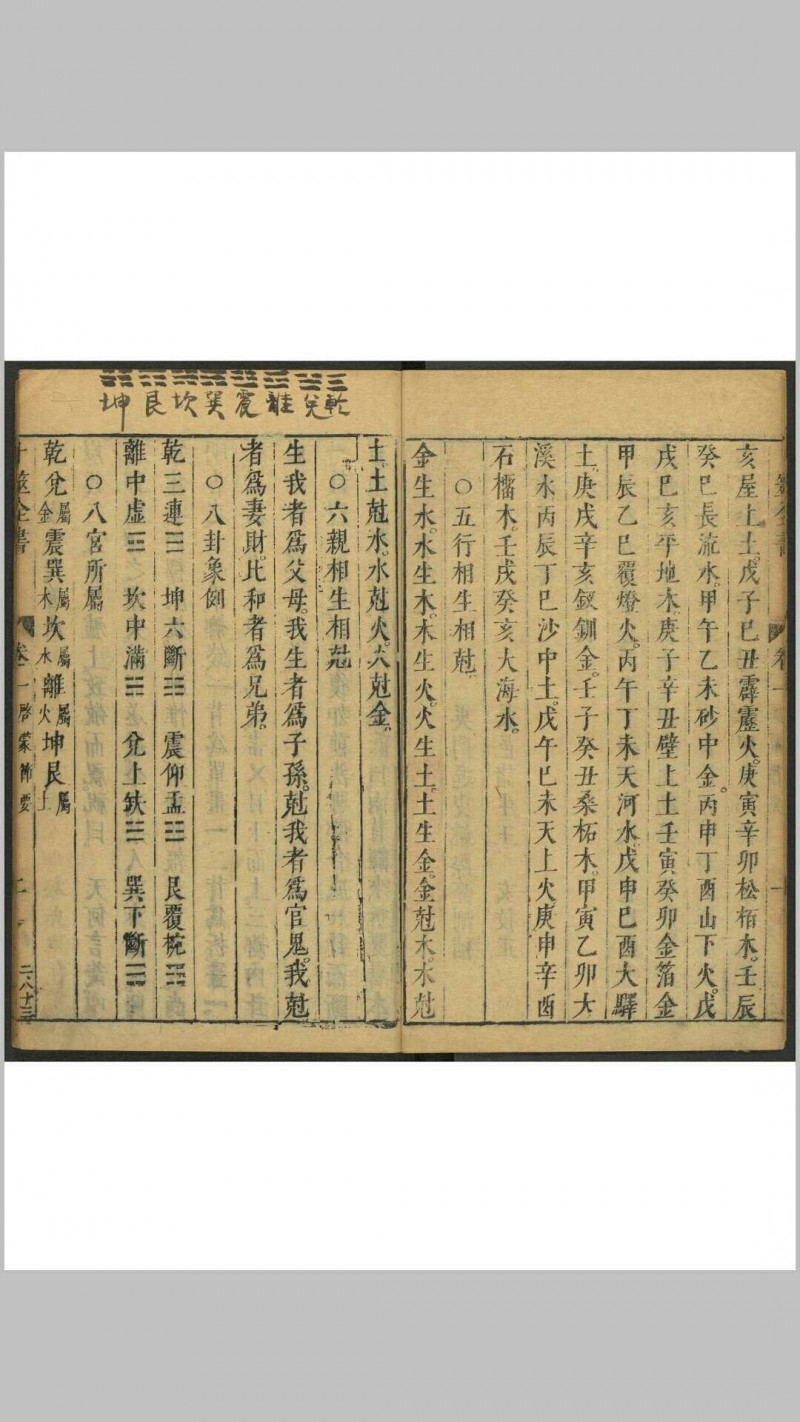 亥屋上土。戊子巳丑霹靂火。庚寅辛卯松栢木。壬辰
癸巳長流水。甲午乙未砂中金。丙申丁酉山下火。戊
戌巳亥平地木。庚子辛丑壁上土壬寅癸卯金箔金
甲辰乙巳覆燈火。丙午丁未天河水。戊申巳酉大驛
土。庚戌辛亥釵釧金。壬子癸丑桑柘木。甲寅乙卯大
溪水丙辰丁巳沙中土。戊午巳未天上火庚申辛酉
石橊木。壬戌癸亥大海水。
○五行相生相尅
金生水。水生木。木生火。火生土。土生金。金尅木。木尅
土。土尅水。水尅火。火尅金。
○六親相生相尅
生我者爲父母。我生者爲子孫。尅我者爲官鬼。我尅
者爲妻財。比和者爲兄弟。
○八卦象例
乾三連☰ 坤六斷☷ 震仰盂☳ 艮覆椀☶
離中虛☲ 坎中滿☵ 兊上缺☱ 巽下斷☴
○八宮所屬
乾兊屬金震巽屬木坎屬水離屬火坤艮屬土
卜筮全書 卷一 啓蒙節要 二
☰☱☲☳☴☵☶☷
乾兊離震巽坎艮坤